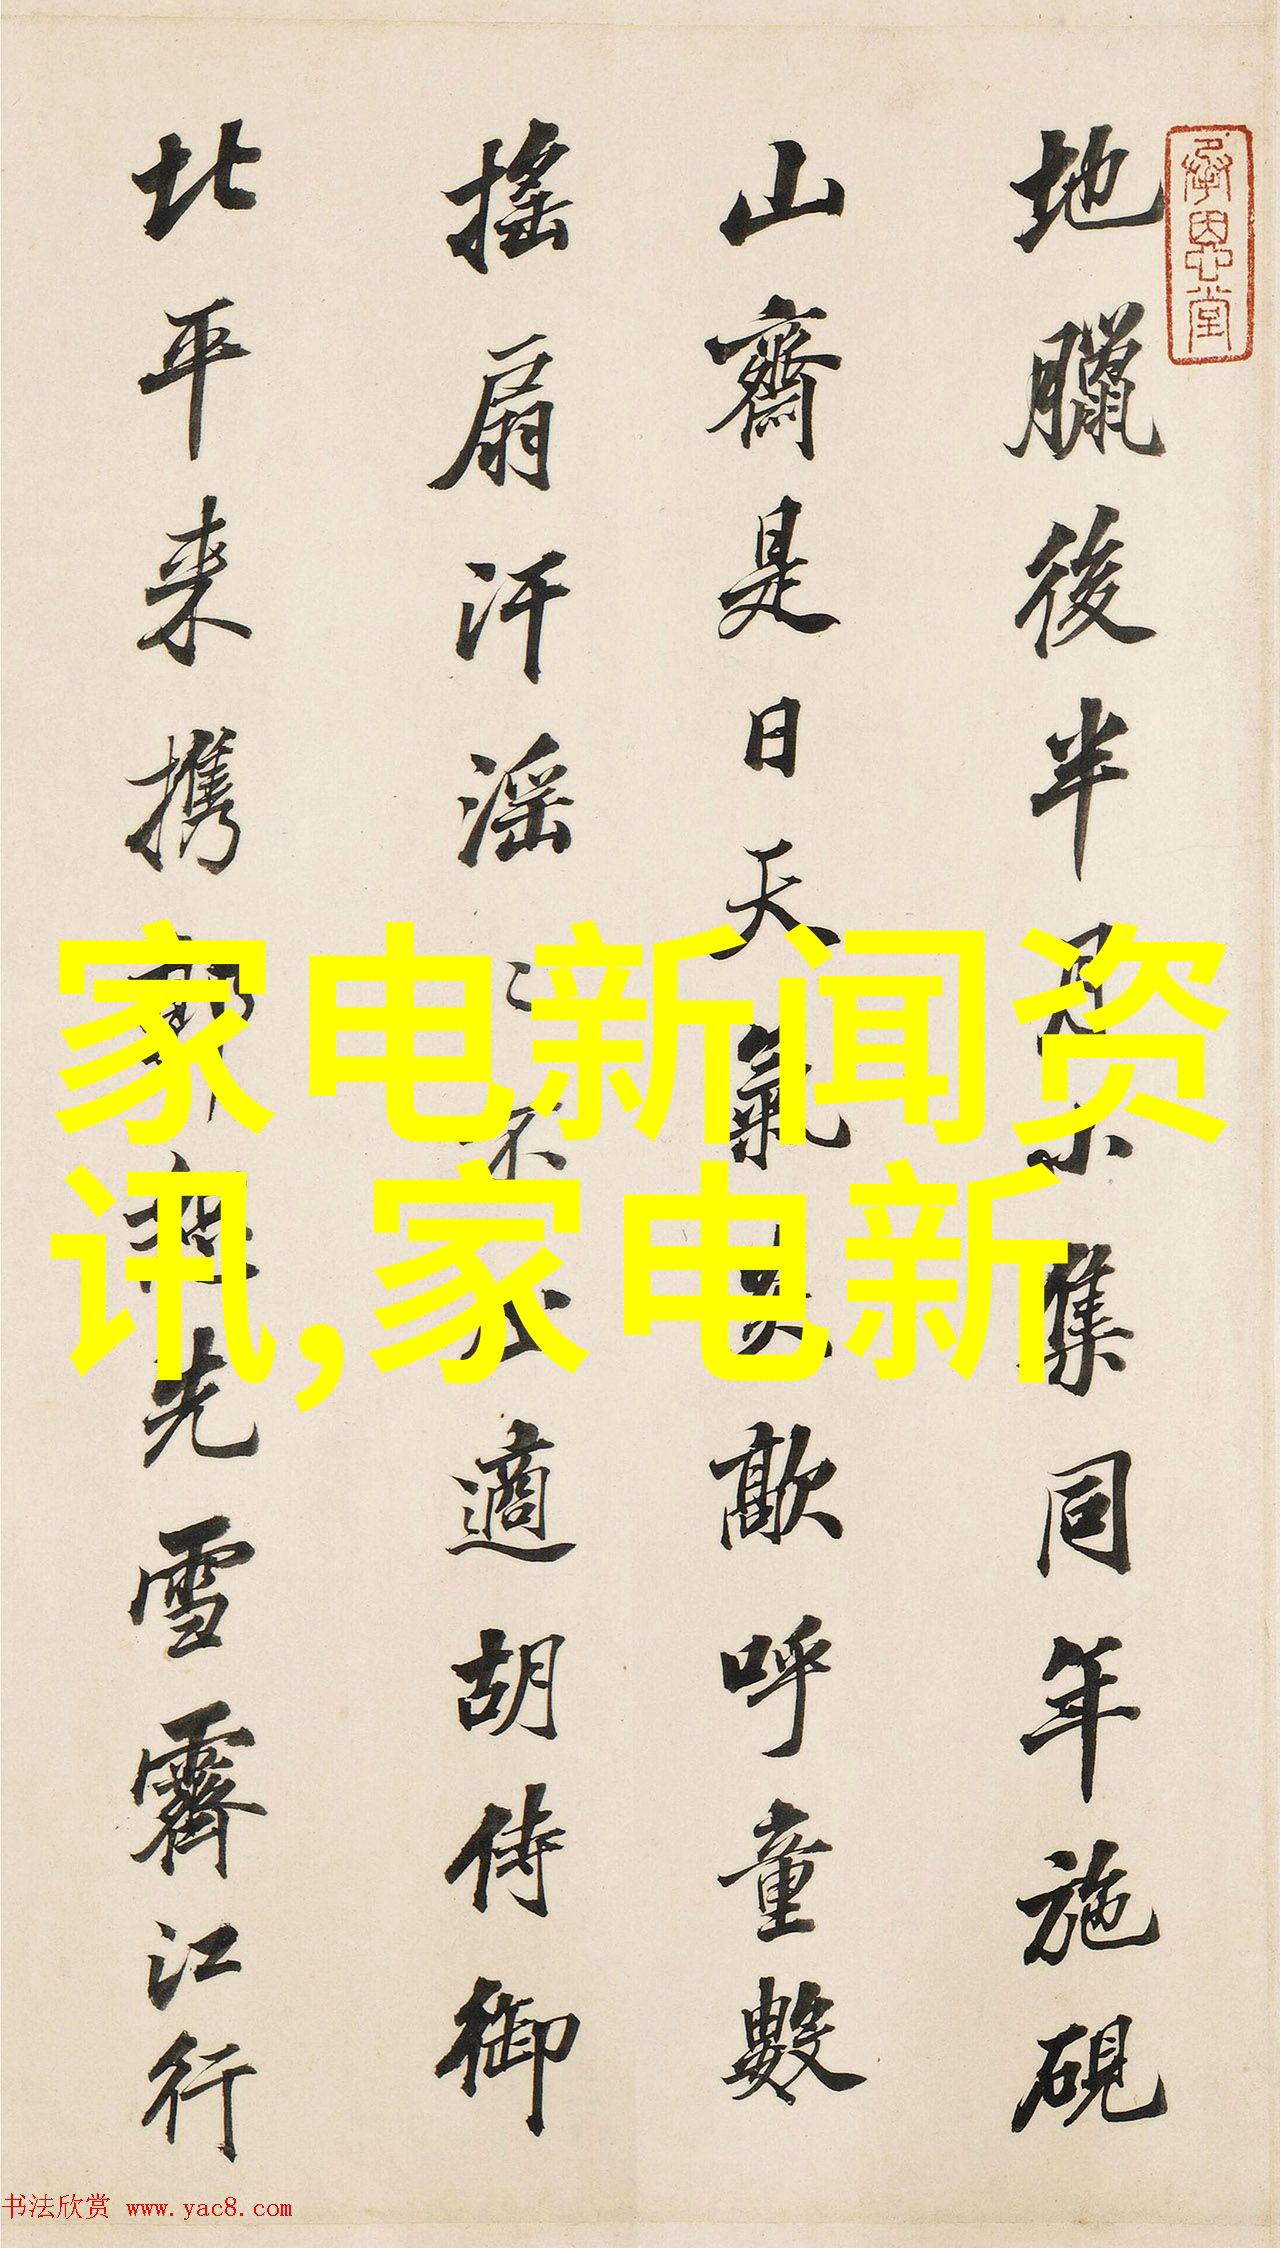 承恩堂
地臘後半月小集同年施硯
山齋是日天氣炎歊呼童數
搖扇汗滛〻不止適胡侍御
北平来携郭熙先雪霽江行
家电新闻资
讯,家电新
书法欣赏 www.yac8.com